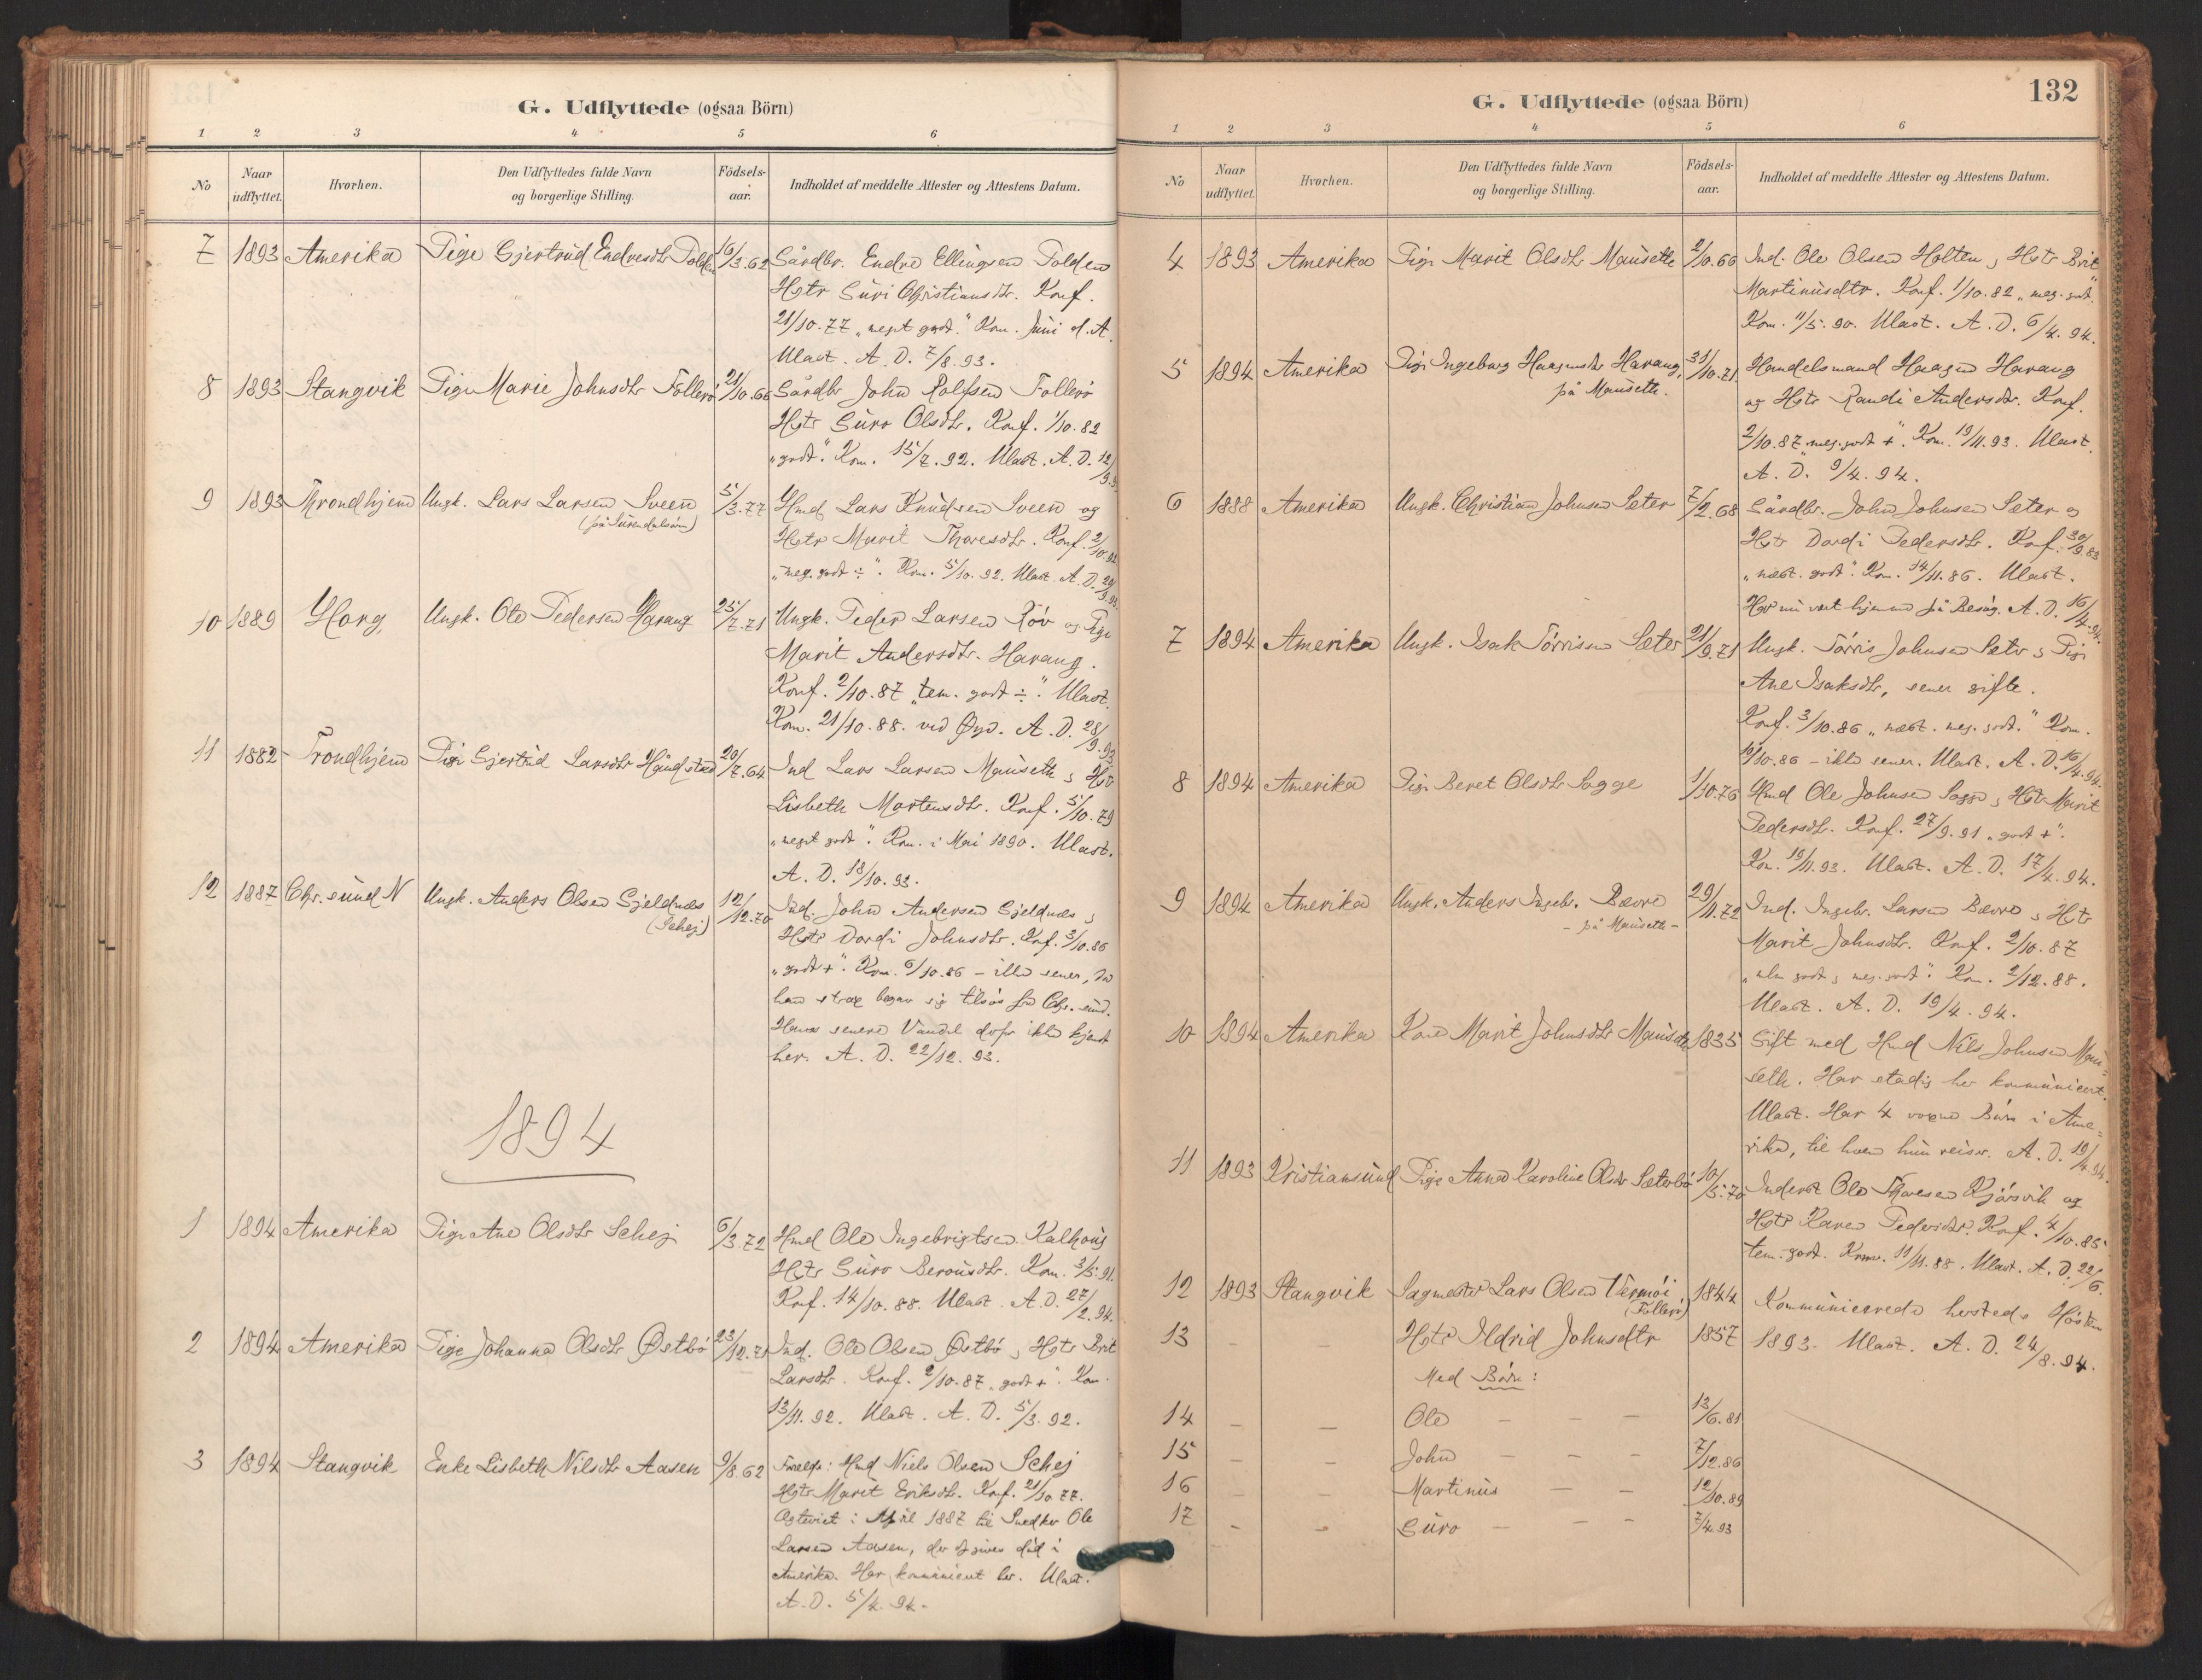 G. Udflyttede (ogsaa Börn)
1 2 3 4 5 6
No Naar udflyttet. Hvorhen. Den Udflyttedes fulde Navn og borgerlige Stilling. Födsels-aar. Indholdet af meddelte Attester og Attestens Datum.
7 1893 Amerika Pige Gjertrud Endresdtr Tolden 16/3.62 Gårdbr. Endre Ellingsen Tolden
Hstr Guri Christiansdtr. Konf.
21/10.77 „meget godt." Kom. Juni d.A.
Ulast. A.D. 7/8.93.
8 1893 Stangvik Pige Marie Johnsdtr Follerö 21/10.66 Gårdbr John Rolfsen Follerö
Hstr Guro Olsdtr. Konf. 1/10.82
„godt". Kom. 15/7.92. Ulast. A.D. 12/9.
9 1893 Throndhjem Ungk. Lars Larsen Sveen 5/3.77 Hmd Lars Knudsen Sveen og
(på Surendalsøren)
Hstr Marit Tharesdtr. Konf. 2/10.92
„meg. godt ÷". Kom. 5/10.92. Ulast. A.D. 29/9.93.
10 1889 Horg, Ungk. Ole Pedersen Harang 25/7.71 Ungk. Peder Larsen Röv og Pige
Marit Andersdtr. Harang.
Konf. 2/10.87 „tem. godt ÷". Ulast.
Kom. 21/10.88. ved Øyd. A.D. 28/9.93
11 1882 Trondhjem Pige Gjertrud Larsdtr Håndstad 20/7.64 Ind Lars Larsen Mauseth & Hstr
Lisbeth Mortensdtr. Konf. 5/10.79
„meget godt". Kom. i Mai 1890. Ulast.
A.D. 18/10.93.
12 1887 Chr.sund N Ungk. Anders Olsen Gjeldnæs 12/12.70 Ind. John Andersen Gjeldnæs &
(Schej)
Hstr Dordi Johnsdtr. Konf. 3/10.86
„godt +". Kom. 6/10.86 – ikke sener, da
han strax begav sig tilsøs fra Chr.sund.
Hans senere Vandel derfor ikke kjendt
her. A.D. 22/12.93.
1894
1 1894 Amerika Pige Ane Olsdtr Schej 6/3.72 Hmd Ole Ingebrigtsen Kalhaug
Hstr Guro Berousdtr. Kom. 3/5.91.
Konf. 14/10.88. Ulast. A.D. 27/2.94.
2 1894 Amerika Pige Johanna Olsdtr Østbö 23/12.71 Ind. Ole Olsen Østbö & Hstr Brit
Larsdtr. Konf. 2/10.87 „godt +". Kom.
13/11.92. Ulast. A.D. 5/3.92.
3 1894 Stangvik Enke Lisbeth Nilsdtr Aasen 9/8.62 Forældr: Hmd Niels Olsen Schej
Hstr Marit Eriksdtr. Konf. 21/10.77.
Ægteviet i April 1887 til Snedker Ole
Larsen Aasen, der opgives död i
Amerika. Har kommunicert her. Ulast.
A.D. 5/4.94.
132
G. Udflyttede (ogsaa Börn)
1 2 3 4 5 6
No Naar udflyttet. Hvorhen. Den Udflyttedes fulde Navn og borgerlige Stilling. Födsels-aar. Indholdet af meddelte Attester og Attestens Datum.
4 1893 Amerika Pige Marit Olsdtr Mauseth 2/10.66 Ind. Ole Olsen Holten & Hstr Brit
Martinusdtr. Konf. 1/10.82 „meg. godt."
Kom. 11/5.90. Ulast. A.D. 6/4.94.
5 1894 Amerika Pige Ingeborg Haagensdtr Harang, 31/10.71. Handelsmand Haagen Harang
på Mauseth.
og Hstr Randi Andersdtr. Konf.
2/10.87 „meg. godt +". Kom. 19/11.93. Ulast.
A.D. 9/4.94.
6 1888 Amerika Ungk. Christian Johnsen Seter 7/2.68 Gårdbr. John Johnsen Seter og
Hstr Dordi Pedersdtr. Konf. 30/9.83
„næst. godt". Kom. 14/11.86. Ulast.
Har nu vært hjemme på Besög. A.D. 16/4.94.
7 1894 Amerika Ungk. Isak Törrisen Seter 21/9.71 Ungk. Törris Johnsen Seter & Pige
Ane Isaksdtr, sener gifte.
Konf. 3/10.86 „næst. meg. godt." Kom.
10/10.86 – ikke sener. Ulast. A.D. 16/4.94.
8 1894 Amerika Pige Beret Olsdtr Sogge 1/10.76 Hmd Ole Johnsen Sogge & Hstr Marit
Pedersdtr. Konf. 27/9.91 „godt +".
Kom. 19/11.93. Ulast. A.D. 17/4.94.
9 1894 Amerika Ungk. Anders Ingebr. Bævre 29/11.72 Ind. Ingebr. Larsen Bævre & Hstr
– på Mauseth –
Marit Johnsdtr. Konf. 2/10.87
godt & meg. godt". Kom. 2/12.88.
Ulast. A.D. 19/4.94.
10 1894 Amerika Kone Marit Johnsdtr Mauseth 1835 Gift med Hmd Nils Johnsen Mau=
seth. Har stadig her kommunicert.
Ulast. Har 4 voxne Börn i Ame=
rika, til hvem hun reiser. A.D. 19/4.94.
11 1893 Kristiansund Pige Anna Karoline Olsdtr Seterbö 10/5.70 Inderst Ole Tharesen Kjörsvik og
Hstr Karen Pedersdtr. Konf. 4/10.85
tem. godt. Kom. 11/11.88. Ulast. A.D. 22/6.
12 1893 Stangvik Sagmester Lars OlsenVærmöi 1844 Kommunicerede hersteds Hösten
(Follerö)
13 – – Hstr Ildrid Johnsdtr 1857 1893. Ulast. A.D. 24/8.94.
Med Börn:
14 – – Ole – – – 13/6.81
15 – – John – – – 7/12.86
16 – – Martinus – – 12/10.89
17 – – Guro – – – 7/4.93